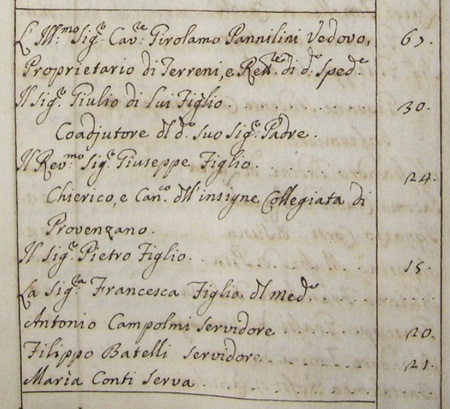 L'Ill.mo Sig.e Cav.e Girolamo Pannilini Vedovo, 67.
Proprietario di Terreni, e Ret.re di d.o Sped.e
Il Sig.e Giulio di lui Figlio . . . . . . 30.
Coadjutore del d.o suo Sig.e Padre.
Il Rev.mo Sig.e Giuseppe Figlio . . . . . 24.
Chierico, e Can.co dell'insigne Collegiata di
Provenzano.
Il Sig.e Pietro Figlio . . . . . . . 15.
La Sig.ra Francesca Figlia del med.o . . . . .
Antonio Campolmi Servidore . . . . . 20.
Filippo Batelli Servidore . . . . . 21.
Maria Conti Serva . . . . . . . .